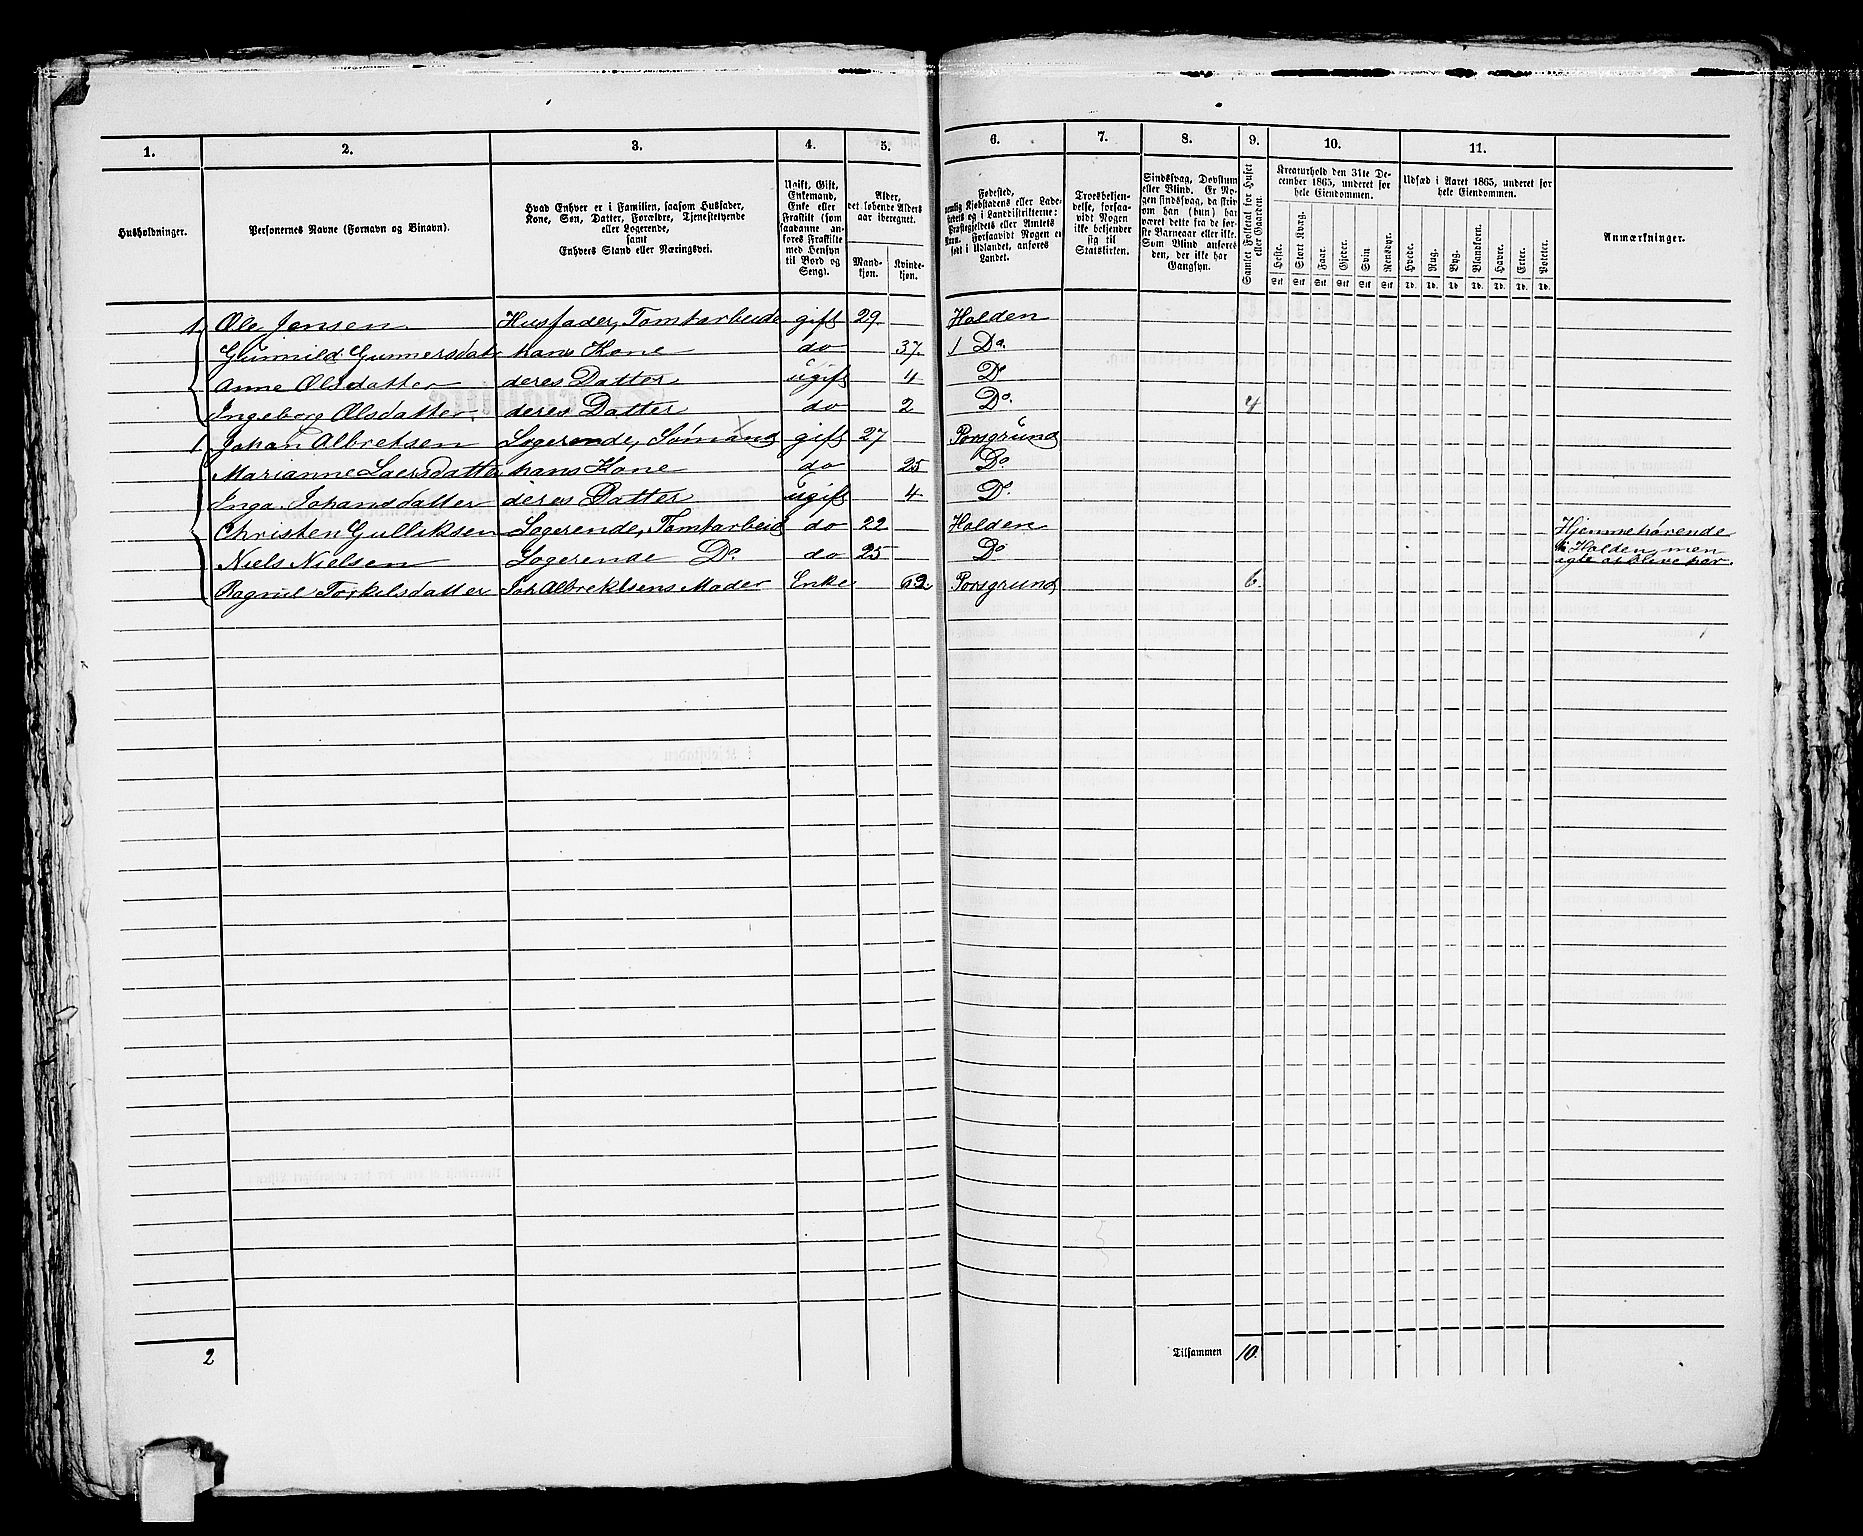 1. 2. 3. 4. 5. 6. 7. 8. 9. 10. 11.
Husholdninger.
Personernes Navne (Fornavn og Binavn).
Hvad Enhver er i Familien, saasom Husfader,
Kone, Søn, Datter, Forældre, Tjenestetyende
eller Logerende,
samt
Enhvers Stand eller Næringsvei.
Ugift, Gift,
Enkemand,
Enke eller
Fraskilt (som
saadanne an-
føres Fraskilte
med Hensyn
til Bord og
Seng).
Alder,
det løbende Alders-
aar iberegnet.
Mand-
kjøn.
Kvinde-
kjøn.
Fødested,
nemlig Kjøbstadens eller Lade-
stedets og i Landdistrikterne:
Præstegjeldets eller Amtets
Navn. Forsaavidt Nogen er
født i Udlandet, anføres
Landet.
Troesbekjen-
delse, forsaa-
vidt Nogen
ikke bekjender
sig til
Statskirken.
Sindssvag, Døvstum
eller Blind. Er No-
gen sindssvag, da skriv
om han (hun) har
været dette fra de før-
ste Barneaar eller ikke.
Som Blind anføres
den, der ikke har
Gangsyn.
Samlet Folketal for Huset
eller Gaarden.
Kreaturhold den 31te De-
cember 1865, underet for
hele Eiendommen.
Heste. Stort Kvæg. Faar. Gjeter. Svin. Rensdyr.
Stk Stk Stk Stk Stk Stk
Udsæd i Aaret 1865, underet for
hele Eiendommen.
Hvede. Rug. Byg. Blandkorn. Havre. Erter. Poteter.
Td. Td. Td. Td. Td. Td. Td.
Anmærkninger.
1 Ole Jensen Husfader, Tomtarbeide gift 29 Holden
Gunnild Gunnersdat hans Kone do 37 1 Do.
Anne Olsdatter deres Datter ugift 4 Do
Ingeborg Olsdatter deres Datter do 2 Do. 4
1 Johan Albretsen Logerende, Sømand gift 27 Porsgrund
Marianne Laersdatter hans Kone do 25 Do
Inga Johansdatter deres Datter ugift 4 Do.
Christen Gulliksen Logerende, Tomtarbeid do 22 Holden Hjemmehørende
Niels Nielsen Logerende Do. do 25 Do i Holden, men
agte at blive her.
Ragnil Torkelsdatter Joh Albrektsens Moder Enke 62 Porsgrund 6.
2 Tilsammen 10.